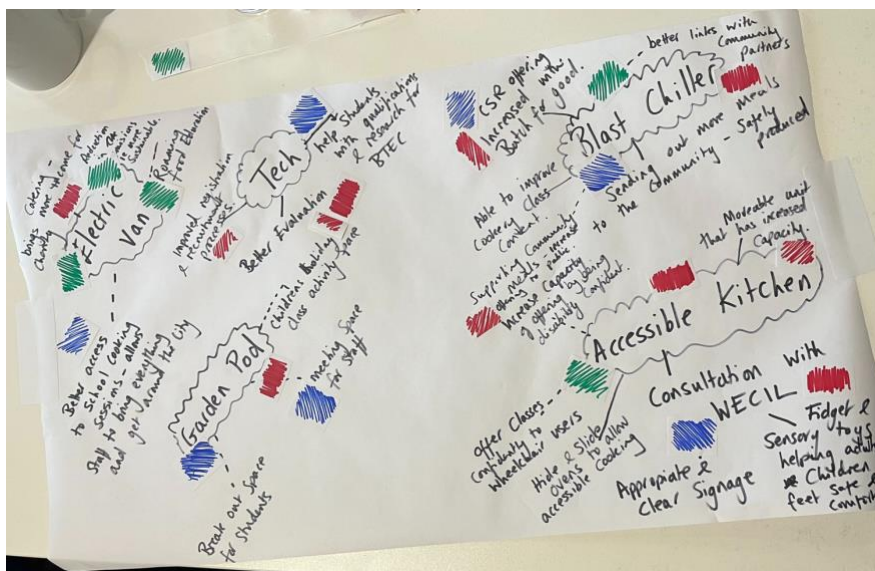 Catering -
brings more income for
charity
Reduction
is more
sustainable.
Roaming
Food Education
Electric
Van
Better access
to School cooking
sessions - allows
Staff to bring everything
and get around the City
Tech
help Students
with qualifications
& research for
BTEC
improved registration
& recruitment
processes.
Better Evaluation
Garden Pod
Childrens holiday
class activity space
meeting space
for staff
Break out space
for students
Blast Chiller
CSR offering
increased with
Batch for good.
better links with
Community
partners
Sending out more meals
to the Community - Safely
produced
Able to improve
Cookery class
Content.
Supporting Community
meals - increase
offering to public.
Increase Capacity
of offering by being
disability confident.
Accessible Kitchen
Moveable unit
that has increased
Capacity.
Offer Classes
confidently to
wheelchair users
Hide & Slide
ovens to allow
accessible cooking
Consultation with
WECIL
Appropiate &
Clear Signage
Fidget &
Sensory toys
helping adults
Children
feel safe &